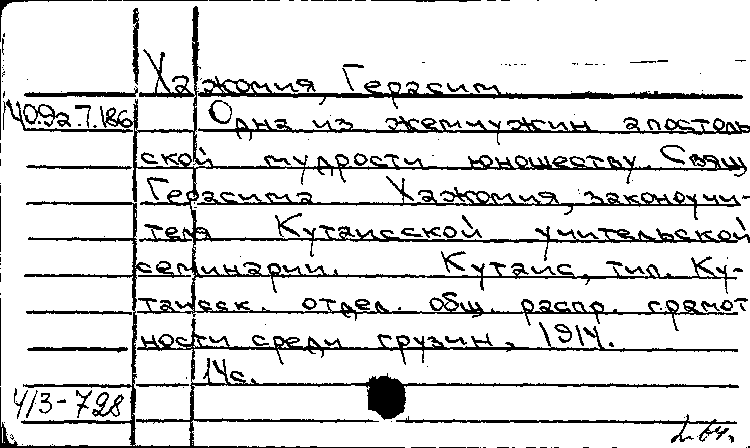 Хажомия, Герасим
40.9а 7.186 Одна из жемчужин апостоль
ской мудрости юношеству. Свящ
Герасима Хажомия, законоучи-
теля Кутаисской учительской
семинарии. Кутаис, тип. Ку-
таисск. отдел. общ. распр. грамот
ности среди грузин, 1914.
14с.
413-728